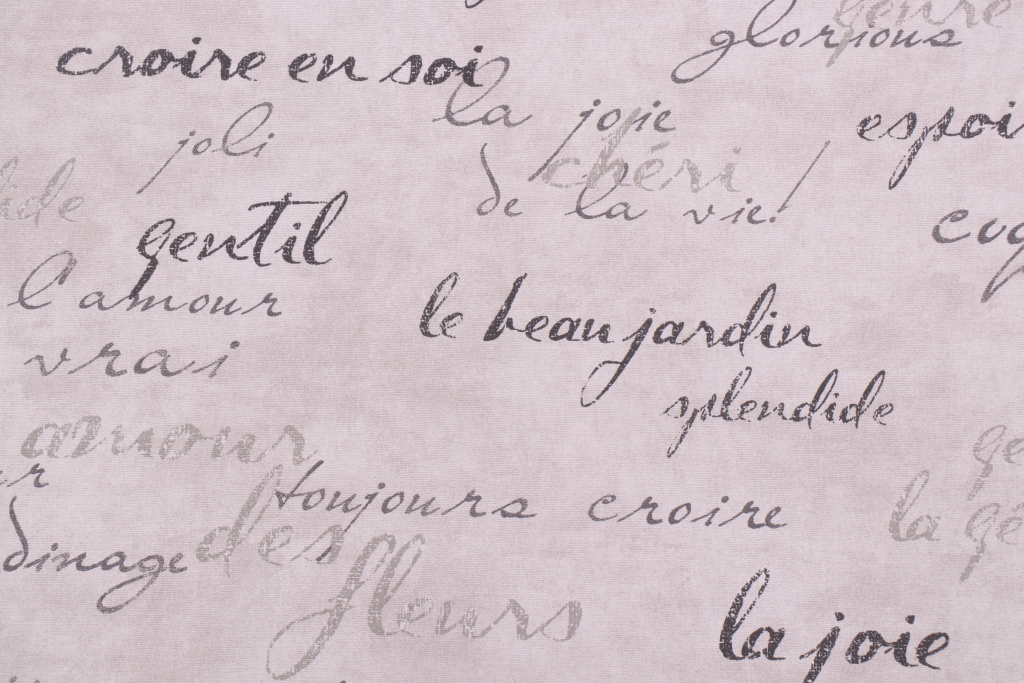 genre
glorious
croire en soi
la joie
joli
espoir
chéri
de la vie.
gentil
l'amour
le beau jardin
vrai
splendide
amour
toujours croire
des
dinage
fleurs
la joie